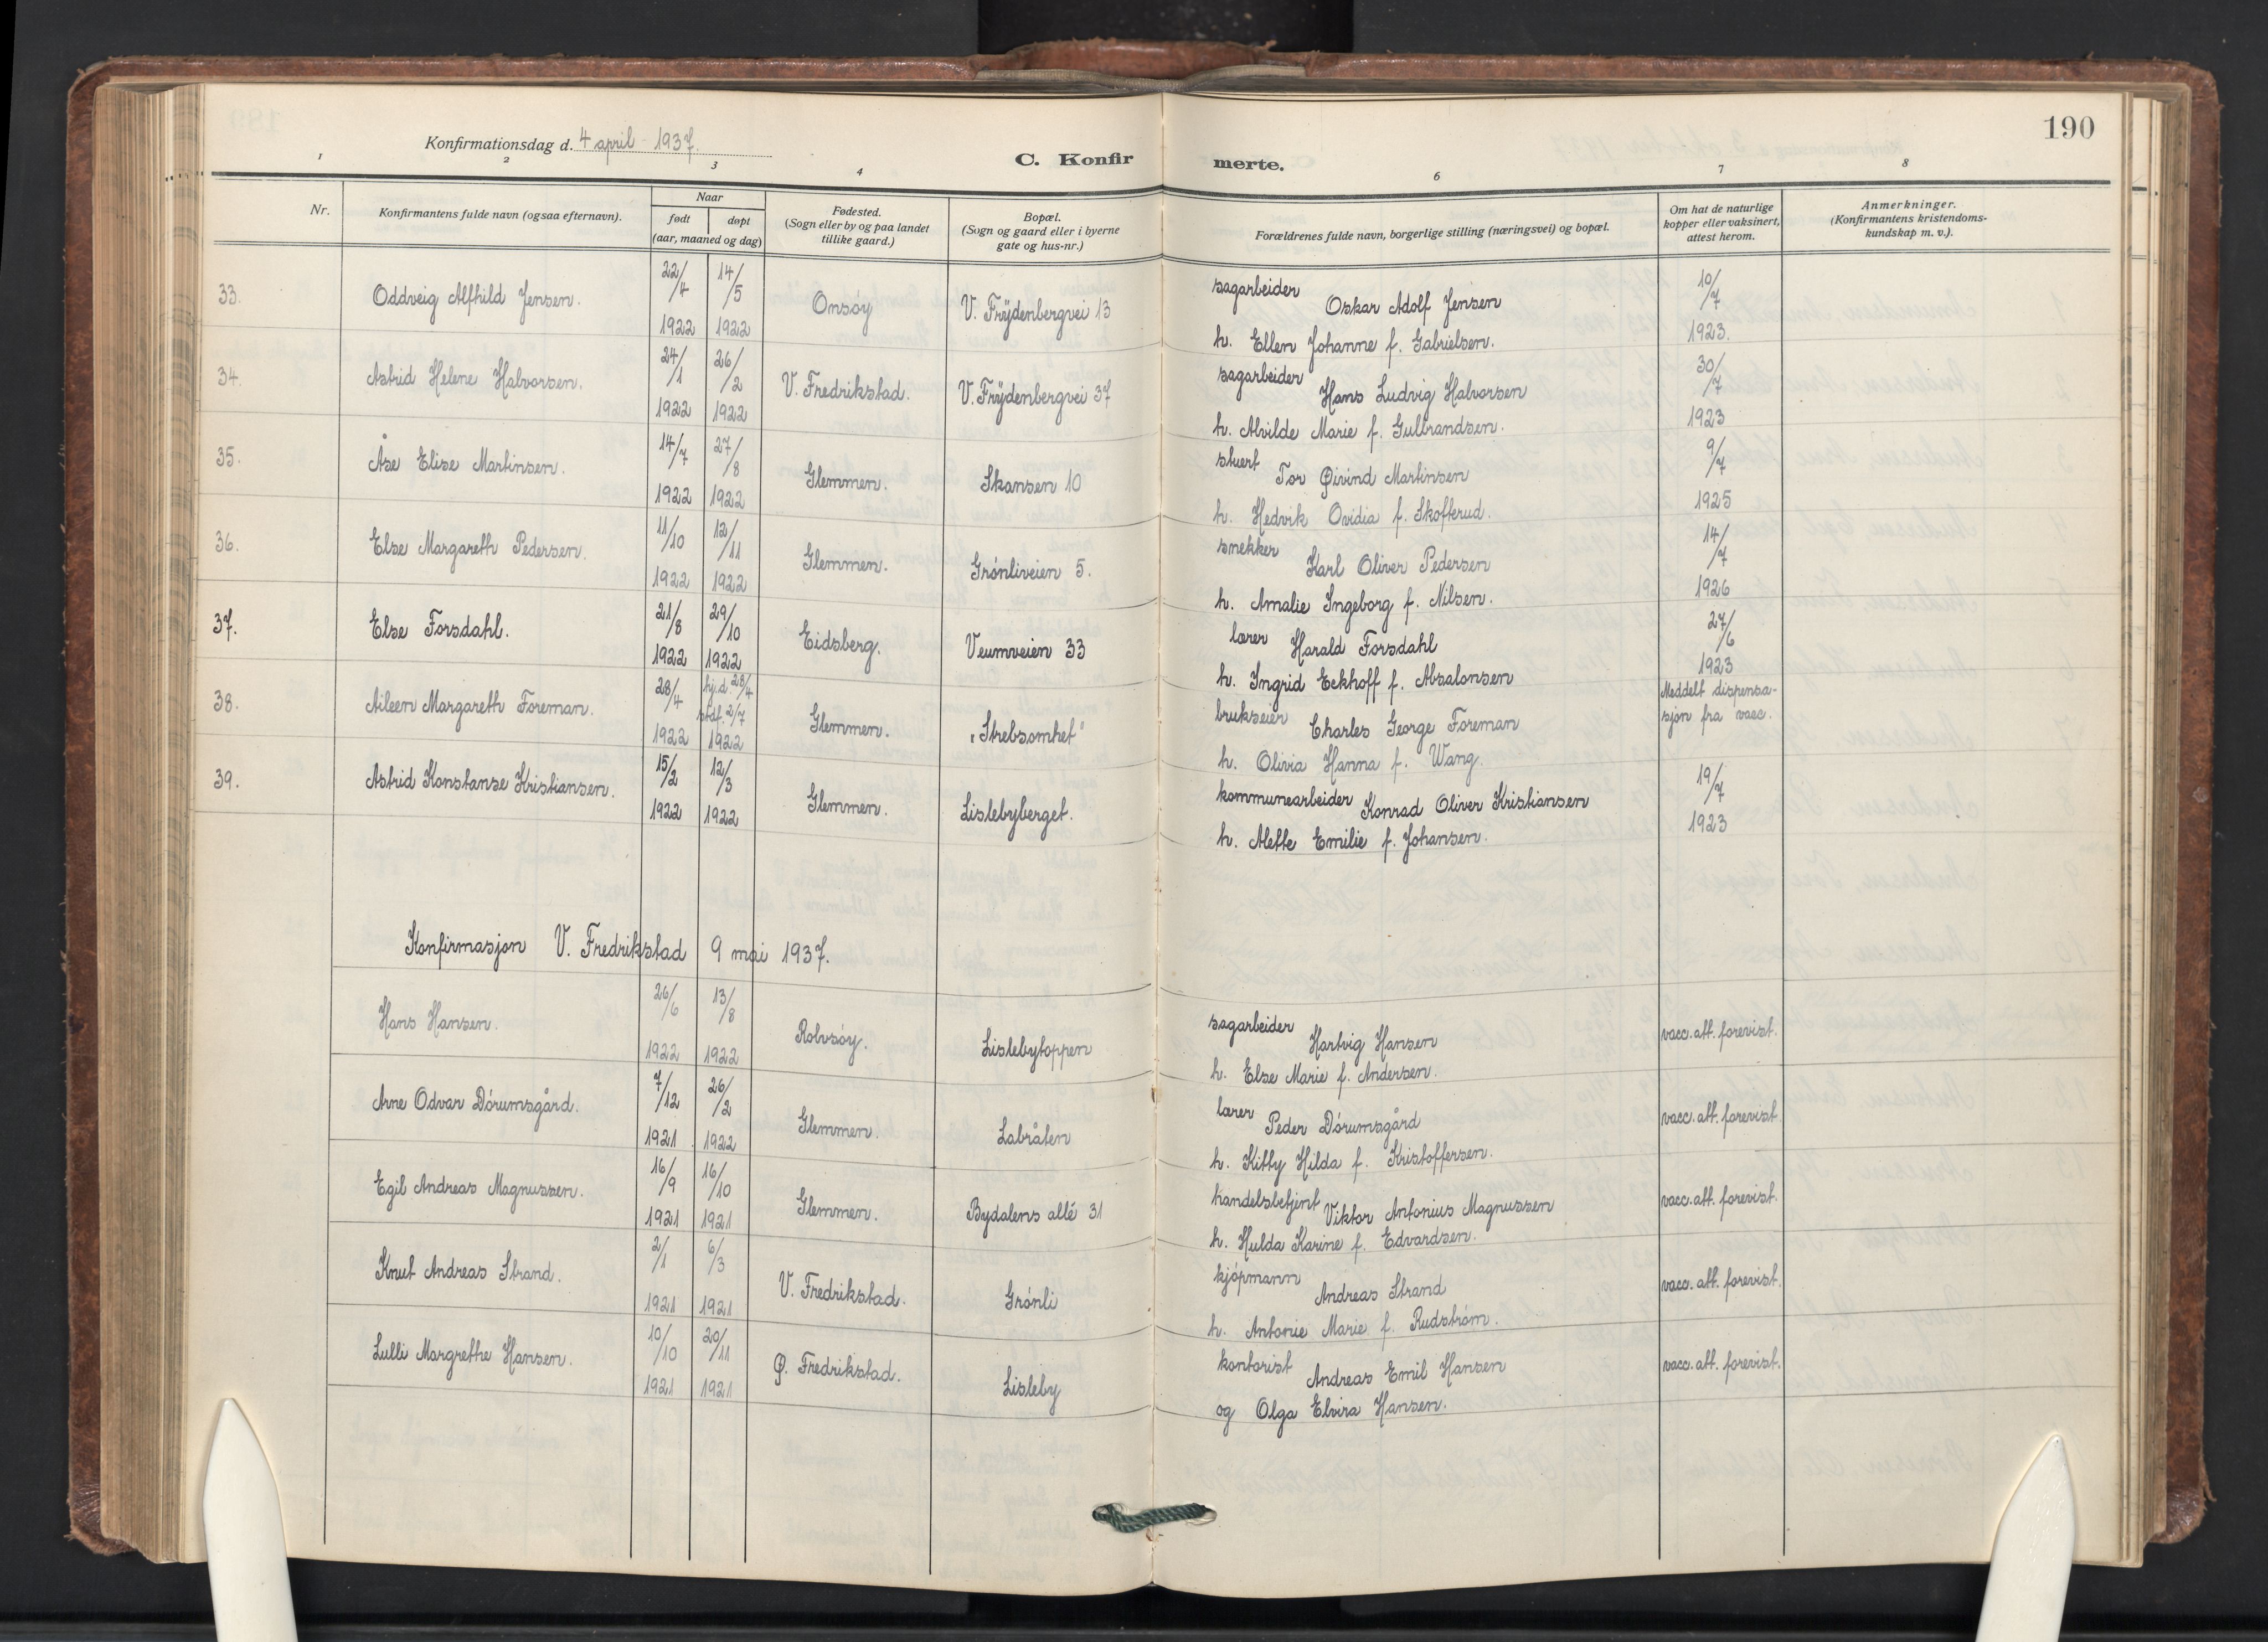 190
Konfirmationsdag d. 4 april 1937.
C. Konfirmerte.
1 2 3 4 6 7 8
Nr.
Konfirmantens fulde navn (ogsaa efternavn).
Naar
født døpt
(aar, maaned og dag)
Fødested.
(Sogn eller by og paa landet
tillike gaard.)
Bopæl.
(Sogn og gaard eller i byerne
gate og hus-nr.)
Forældrenes fulde navn, borgerlige stilling (næringsvei) og bopæl.
Om hat de naturlige
kopper eller vaksinert,
attest herom.
Anmerkninger.
(Konfirmantens kristendoms-
kundskap m. v.).
33. Oddveig Alfhild Jensen. 22/4 1922 14/5 1922 Onsøy V. Frydenbergvei 13 sagarbeider Oskar Adolf Jensen 10/7 1923.
h. Ellen Johanne f. Gabrielsen.
34. Astrid Helene Halvorsen. 24/1 1922 26/2 1922 V. Fredrikstad. V. Frydenbergvei 37 sagarbeider Hans Ludvig Halvorsen 30/7 1923
h. Alvilde Marie f. Gulbrandsen.
35. Åse Elise Martinsen. 14/7 1922 27/8 1922 Glemmen. Skansen 10 stuert Tor Øivind Martinsen 9/7 1925
h. Hedvik Ovidia f. Skofterud.
36. Else Margareth Pedersen. 11/10 1922 12/11 1922 Glemmen. Grønliveien 5. snekker Karl Oliver Pedersen 14/7 1926
h. Amalie Ingeborg f. Nilsen.
37. Else Forsdahl. 21/8 1922 29/10 1922 Eidsberg. Veumveien 33 lærer Harald Forsdahl 27/6 1923
h. Ingrid Eckhoff f. Absalonsen
38. Aileen Margareth Foreman. 28/4 1922 hj.d. 28/4 stdf. 2/7 1922 Glemmen. "Strebsomhet" brukseier Charles George Foreman Meddelt dispensa-
sjon fra vacc.
h. Olivia Hanna f. Wang.
39. Astrid Konstanse Kristiansen. 15/2 1922 12/3 1922 Glemmen. Lislebyberget. kommunearbeider Konrad Oliver Kristiansen 19/7 1923
h. Alette Emilie f. Johansen.
Konfirmasjon V. Fredrikstad 9 mai 1937.
Hans Hansen. 26/6 1922 13/8 1922 Rolvsøy. Lislebytoppen sagarbeider Hartvig Hansen vacc. att. forevist.
h. Else Marie f. Andersen.
Arne Odvar Dørumsgård. 7/12 1921 26/2 1922 Glemmen. Labråten lærer Peder Dørumsgård vacc. att. forevist
h. Kitty Hilda f. Kristoffersen.
Egil Andreas Magnussen. 16/9 1921 16/10 1921 Glemmen. Bydalens allé 31 handelsbetjent Viktor Antonius Magnussen vacc. att. forevist.
h. Hulda Karine f. Edvardsen.
Knut Andreas Strand. 2/1 1921 6/3 1921 V. Fredrikstad. Grønli kjøpmann Andreas Strand vacc. att. forevist.
h. Antonie Marie f. Rudstrøm.
Lulli Margrethe Hansen. 10/10 1921 20/11 1921 Ø. Fredrikstad. Lisleby kontorist Andreas Emil Hansen vacc. att. forevist.
og Olga Elvira Hansen.